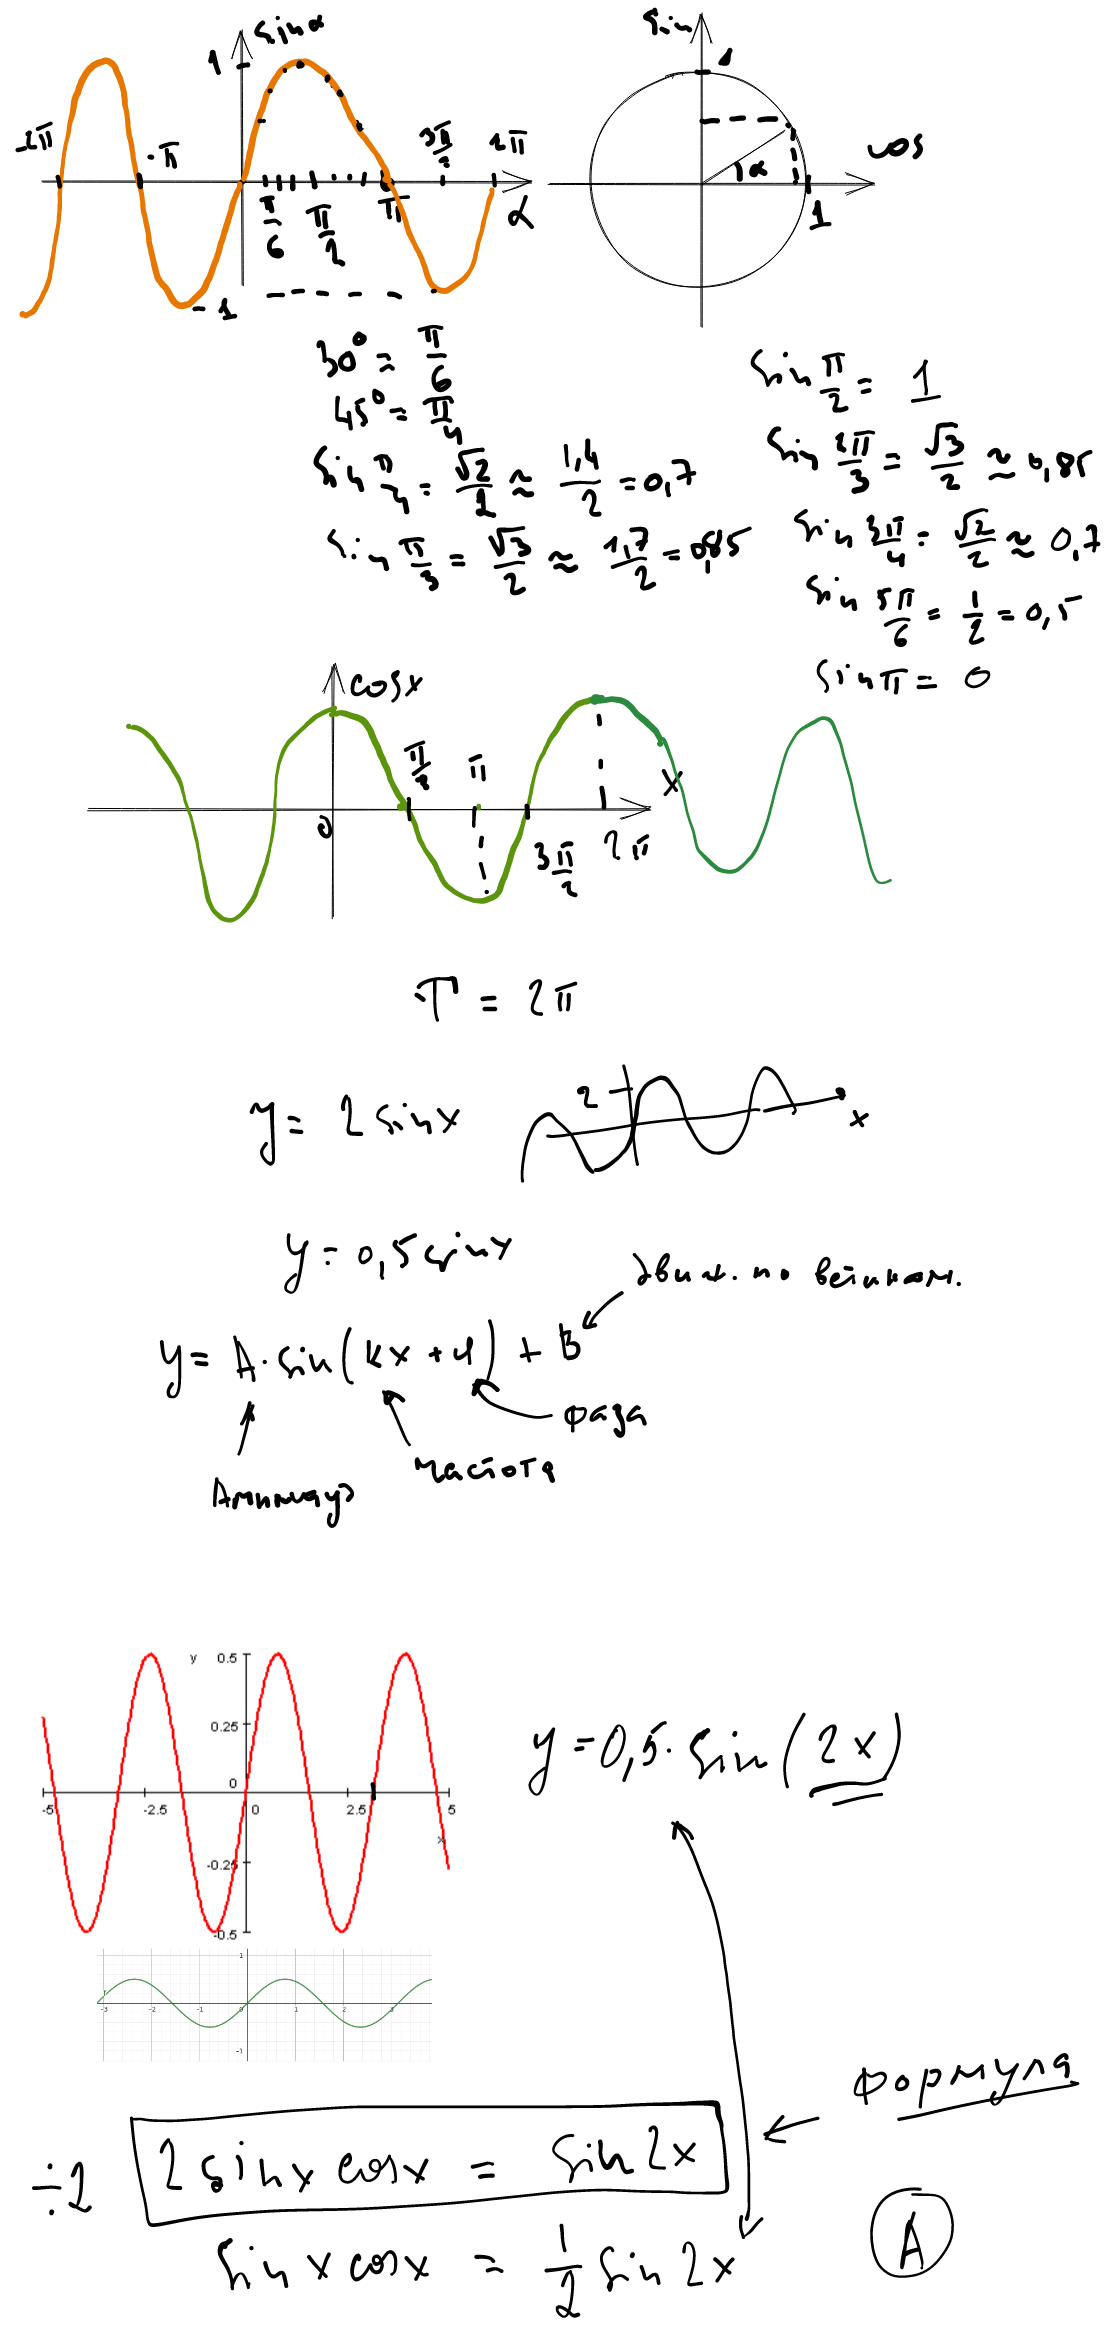 sin α
1
-2π
-π
π/6
π/2
π
3π/2
2π
α
-1
sin
1
cos
α
1
30° = π/6
45° = π/4
sin π/4 = √2/2 ≈ 1,4/2 = 0,7
sin π/3 = √3/2 ≈ 1,7/2 = 0,85
sin π/2 = 1
sin 2π/3 = √3/2 ≈ 0,85
sin 3π/4 = √2/2 ≈ 0,7
sin 5π/6 = 1/2 = 0,5
sin π = 0
cos x
π/2
π
x
0
3π/2
2π
T = 2π
y = 2 sin x
2
x
y = 0,5 sin x
движ. по
y = A · sin(kx + φ) + B
фаза
частота
y
0.5
0.25
0
-5
-2.5
0
2.5
5
x
-0.25
-0.5
y = 0,5 · sin(2x)
1
-3
-2
-1
0
1
2
3
-1
формула
÷2
2 sin x cos x = sin 2x
sin x cos x = 1/2 sin 2x
A